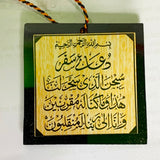 بسم الله الرحمن الرحيم
دعائے سفر
سبحن الذي سخر لنا
هذا وما كنا له مقرنين
وانا الى ربنا لمنقلبون